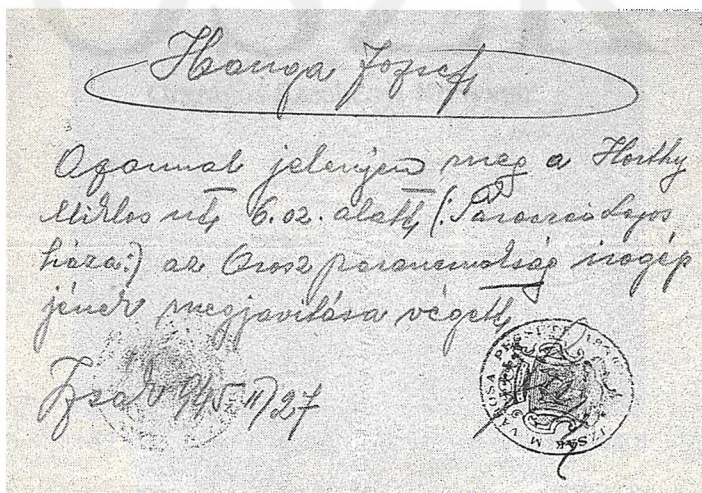 Hanga József
Azonnal jelenjen meg a Horthy
Miklos ut, 6.02. alatt, (: Lajos
háza:) az Orosz parancsnokság irogép
jének megjavitása végett,
Izsák 945 II) 27
IZSÁK M VÁROSA PEST